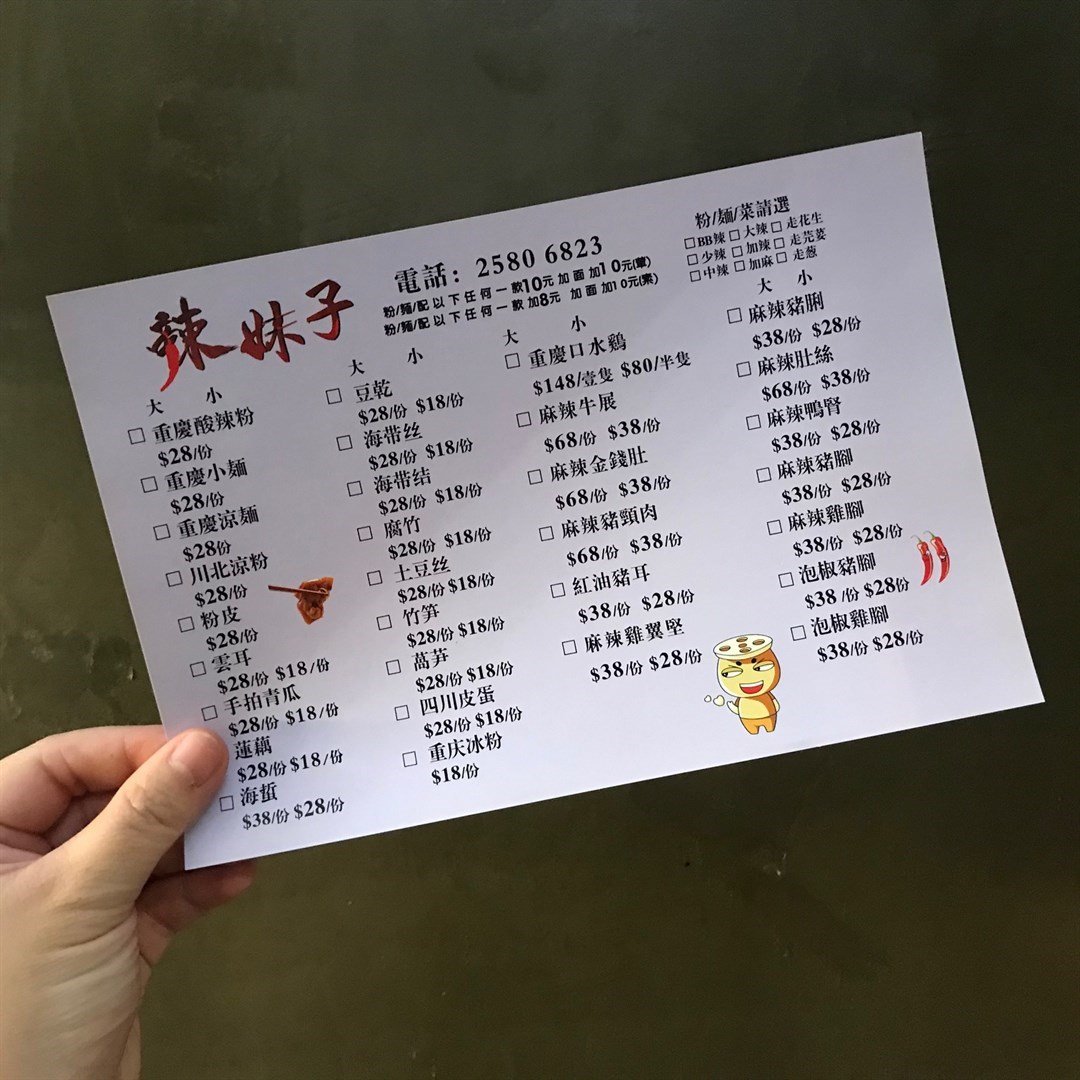 辣妹子
電話：2580 6823
粉/麵/配以下任何一款10元 加面加10元(葷)
粉/麵/配以下任何一款加8元 加面加10元(素)
粉/麵/菜請選
□BB辣 □大辣 □走花生
□少辣 □加辣 □走芫荽
□中辣 □加麻 □走葱
大 小
□ 重慶酸辣粉
$28/份
□ 重慶小麵
$28/份
□ 重慶涼麵
$28份
□ 川北涼粉
$28/份
□ 粉皮
$28/份
□ 雲耳
$28/份 $18/份
□ 手拍青瓜
$28/份 $18/份
蓮藕
$28/份 $18/份
□ 海蜇
$38/份 $28/份
大 小
□ 豆乾
$28/份 $18/份
□ 海带丝
$28/份 $18/份
□ 海带结
$28/份 $18/份
□ 腐竹
$28/份 $18/份
□ 土豆丝
$28/份 $18/份
□ 竹笋
$28/份 $18/份
□ 萵笋
$28/份 $18/份
□ 四川皮蛋
$28/份 $18/份
□ 重庆冰粉
$18/份
大 小
□ 重慶口水鷄
$148/壹隻 $80/半隻
□ 麻辣牛展
$68/份 $38/份
□ 麻辣金錢肚
$68/份 $38/份
□ 麻辣豬頸肉
$68/份 $38/份
□ 紅油豬耳
$38/份 $28/份
□ 麻辣雞翼堅
$38/份 $28/份
大 小
□ 麻辣豬脷
$38/份 $28/份
□ 麻辣肚絲
$68/份 $38/份
□ 麻辣鴨腎
$38/份 $28/份
□ 麻辣豬腳
$38/份 $28/份
□ 麻辣雞腳
$38/份 $28/份
□ 泡椒豬腳
$38/份 $28份
□ 泡椒雞腳
$38/份 $28/份